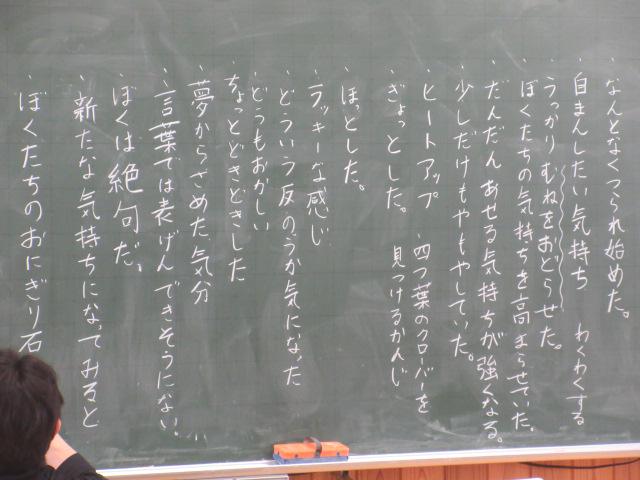 ・なんとなくつられ始めた。
・自まんしたい気持ち　わくわくする
・うっかりむねをおどらせた。
・ぼくたちの気持ちを高まらせていた。
・だんだんあせる気持ちが強くなる。
・少しだけもやもやしていた。
・ヒートアップ　・四つ葉のクローバーを
見つけるかんじ
・ぎょっとした。
・ほっとした。
・ラッキーな感じ
・どういう反のうか気になった
・どっもおかしい
・ちょっとどきどきした
・夢からさめた気分
・言葉では表げんできそうにない。
ぼくは絶句だ。
・新たな気持ちになってみると
・ぼくたちのおにぎり石